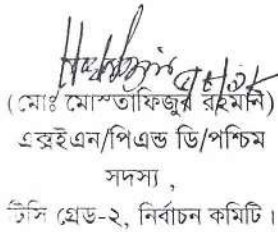 (মোঃ মোস্তাফিজুর রহমান)
এক্সইএন/পিএন্ড ডি/পশ্চিম
সদস্য ,
টিসি গ্রেড-২, নির্বাচন কমিটি।